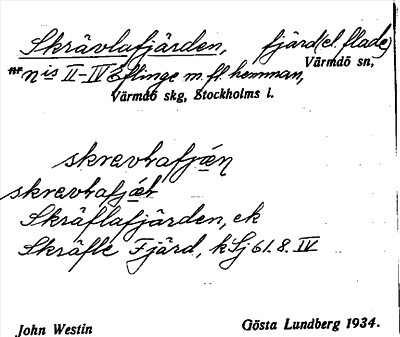 Skrävlafjärden, fjärd (el. flade)
Värmdö sn,
nis II-IV Eflinge m. fl. hemman,
Värmdö skg, Stockholms l.
Skräflafjärden, ek
Skräfle Fjärd, kSj 61. 8. IV
John Westin
Gösta Lundberg 1934.